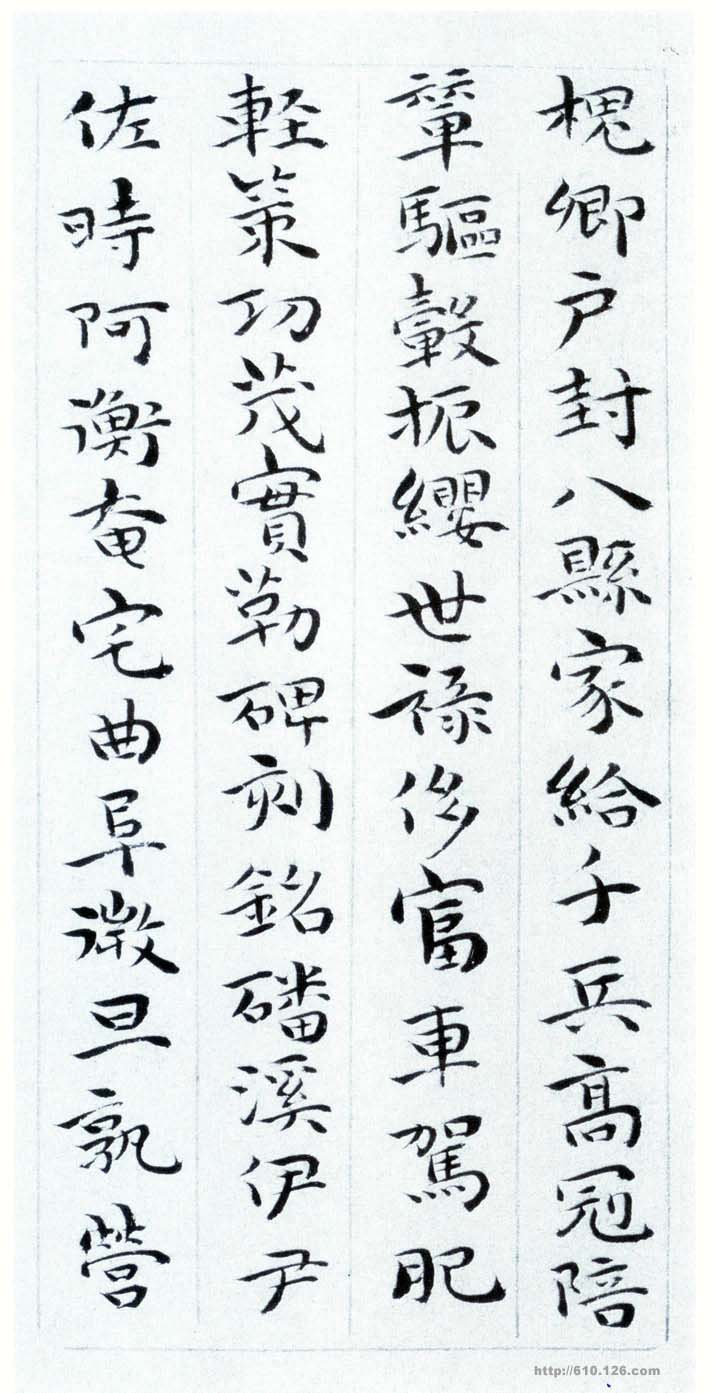 槐卿户封八縣家給千兵高冠陪
輦驅轂振纓世祿侈富車駕肥
軽策功茂實勒碑刻銘磻溪伊尹
佐時阿衡奄宅曲阜微旦孰營
http://610.126.com